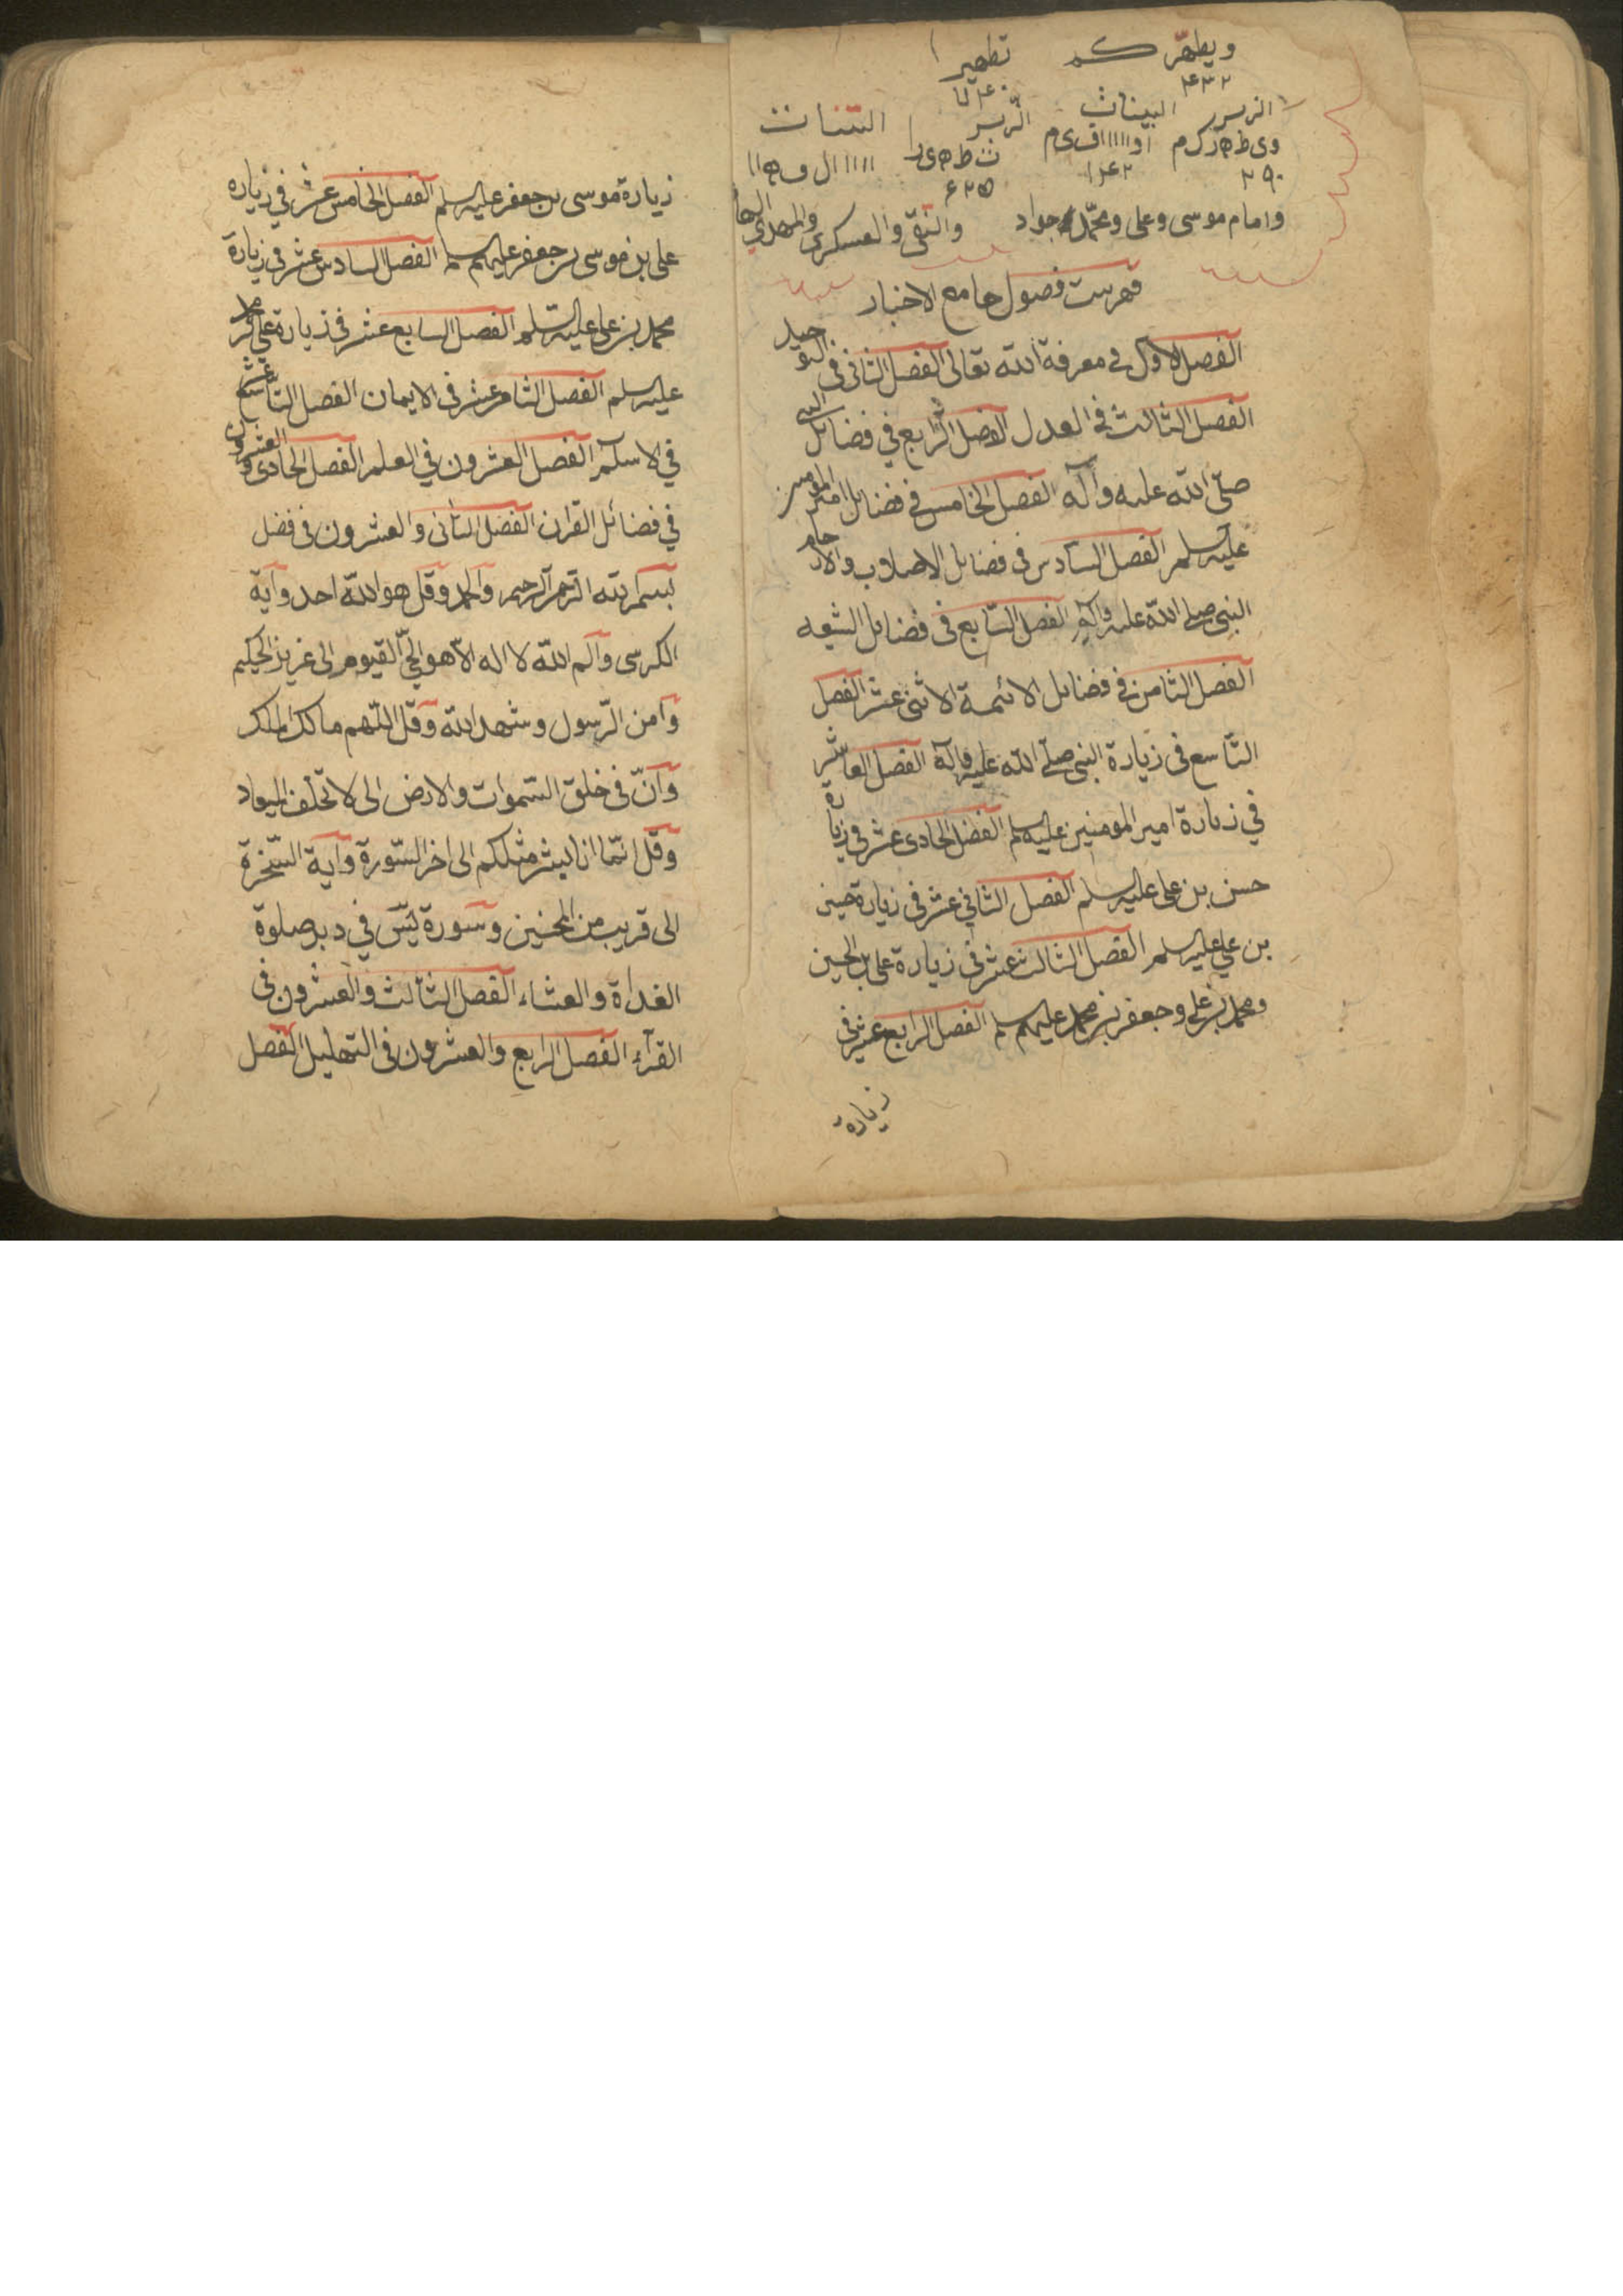 ويطهّركم تطهيرا
۴۳۲
الزبر البينات الزبر البينات
وی ط ه ر ک م او ااااا اف ی م ت ط ه ی را اااا ال ف ه اا
۲۹۰ ۱۴۲ ۶۲۵
وامام موسى وعلى ومحمّد جواد والنقى والعسكرى والمهدي
فهرست فصول جامع الاخبار
الفصل الاول فى معرفة الله تعالى الفصل الثانى فى التوحيد
الفصل الثالث فى العدل الفصل الرّابع في فضائل النبى
صلّى الله عليه وآله الفصل الخامس فى فضائل امير المؤمنين
عليه السلم الفصل السّادس فى فضائل الاصلاب والارحام
النبى صلى الله عليه وآله الفصل السّابع فى فضائل الشيعه
الفصل الثامن فى فضائل الائمة الاثنى عشر الفصل
التّاسع فى زيارة النبى صلّى الله عليه وآله الفصل العاشر
في زيارة امير المومنين عليه السلم الفصل الحادى عشر فى زيارة
حسن بن على عليه السلم الفصل الثاني عشر فى زيارة حسين
بن علي عليه السلم الفصل الثالث عشر فى زيارة على بن الحسين
ومحمد بن على وجعفر بن محمد عليهم السلم الفصل الرابع عشر فى
زيارة
زيارة موسى بن جعفر عليه السلم الفصل الخامس عشر في زياره
على بن موسى بن جعفر عليهم السلم الفصل السادس عشر فى زيارة
محمد بن على عليه السّلم الفصل السابع عشر فى زيارة على بن محمد
عليه السلم الفصل الثامن عشر فى الايمان الفصل التّاسع عشر
في الاسلم الفصل العشرون في العلم الفصل الحادى والعشرون
في فضائل القران الفصل الثانى والعشرون فى فضل
بسم الله الرحمن الرحيم والحمد وقل هو الله احد وآية
الكرسى وآلم الله لا اله الاّ هو الحيّ القيوم الى عزيز الحكيم
وآمن الرّسول وشهد الله وقل اللّهم مالك الملك
وانّ فى خلق السّموات والارض الى لا تخلف الميعاد
وقل انّما انا بشر مثلكم الى اخر السّورة وآية السّخرة
الى قريب من المحسنين وسورة يسۤ في دبر صلوة
الغداة والعشاء الفصل الثالث والعشرون فى
القرآء الفصل الرابع والعشرون فى التهليل الفصل